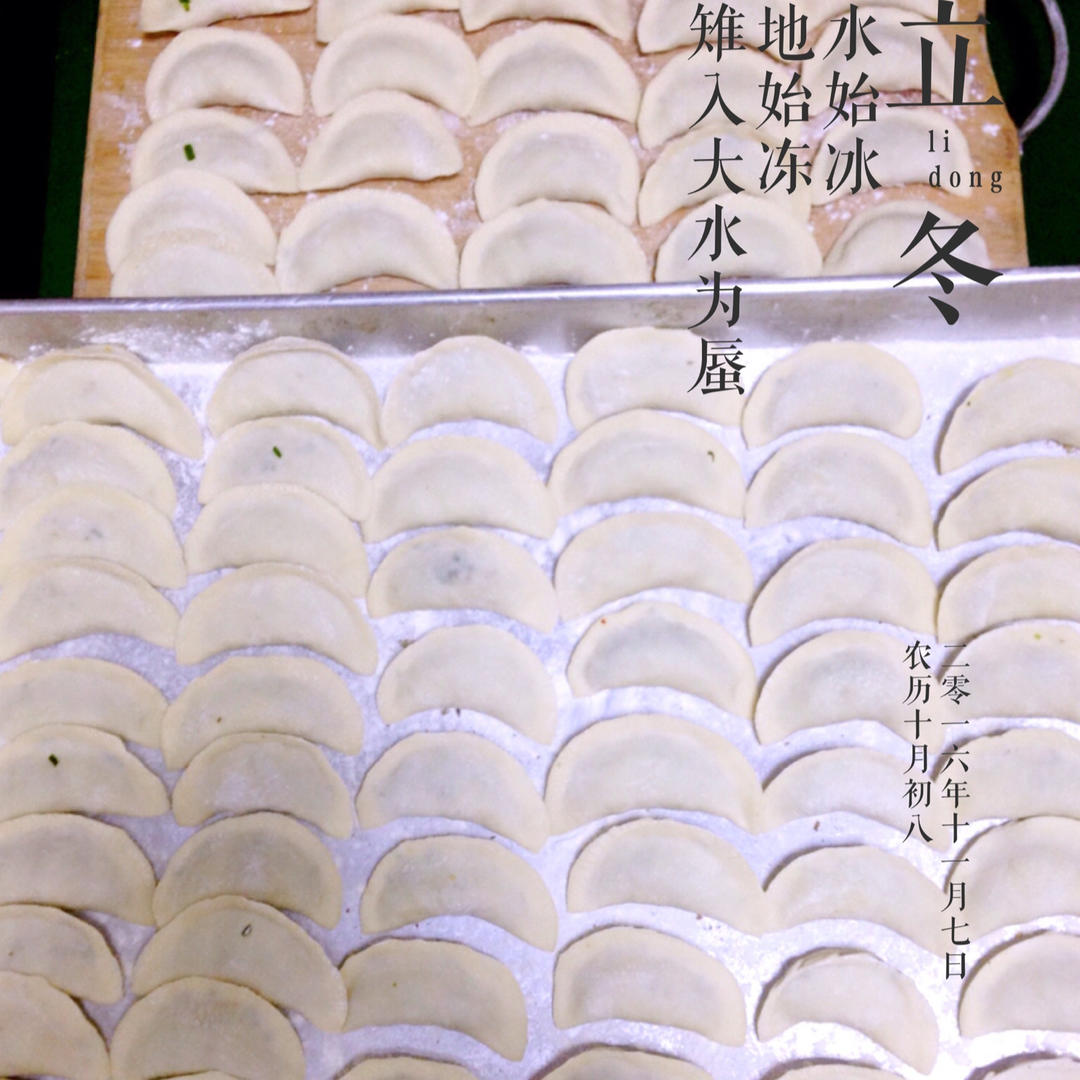 立冬
li
dong
水始冰
地始冻
雉入大水为蜃
二零一六年十一月七日
农历十月初八